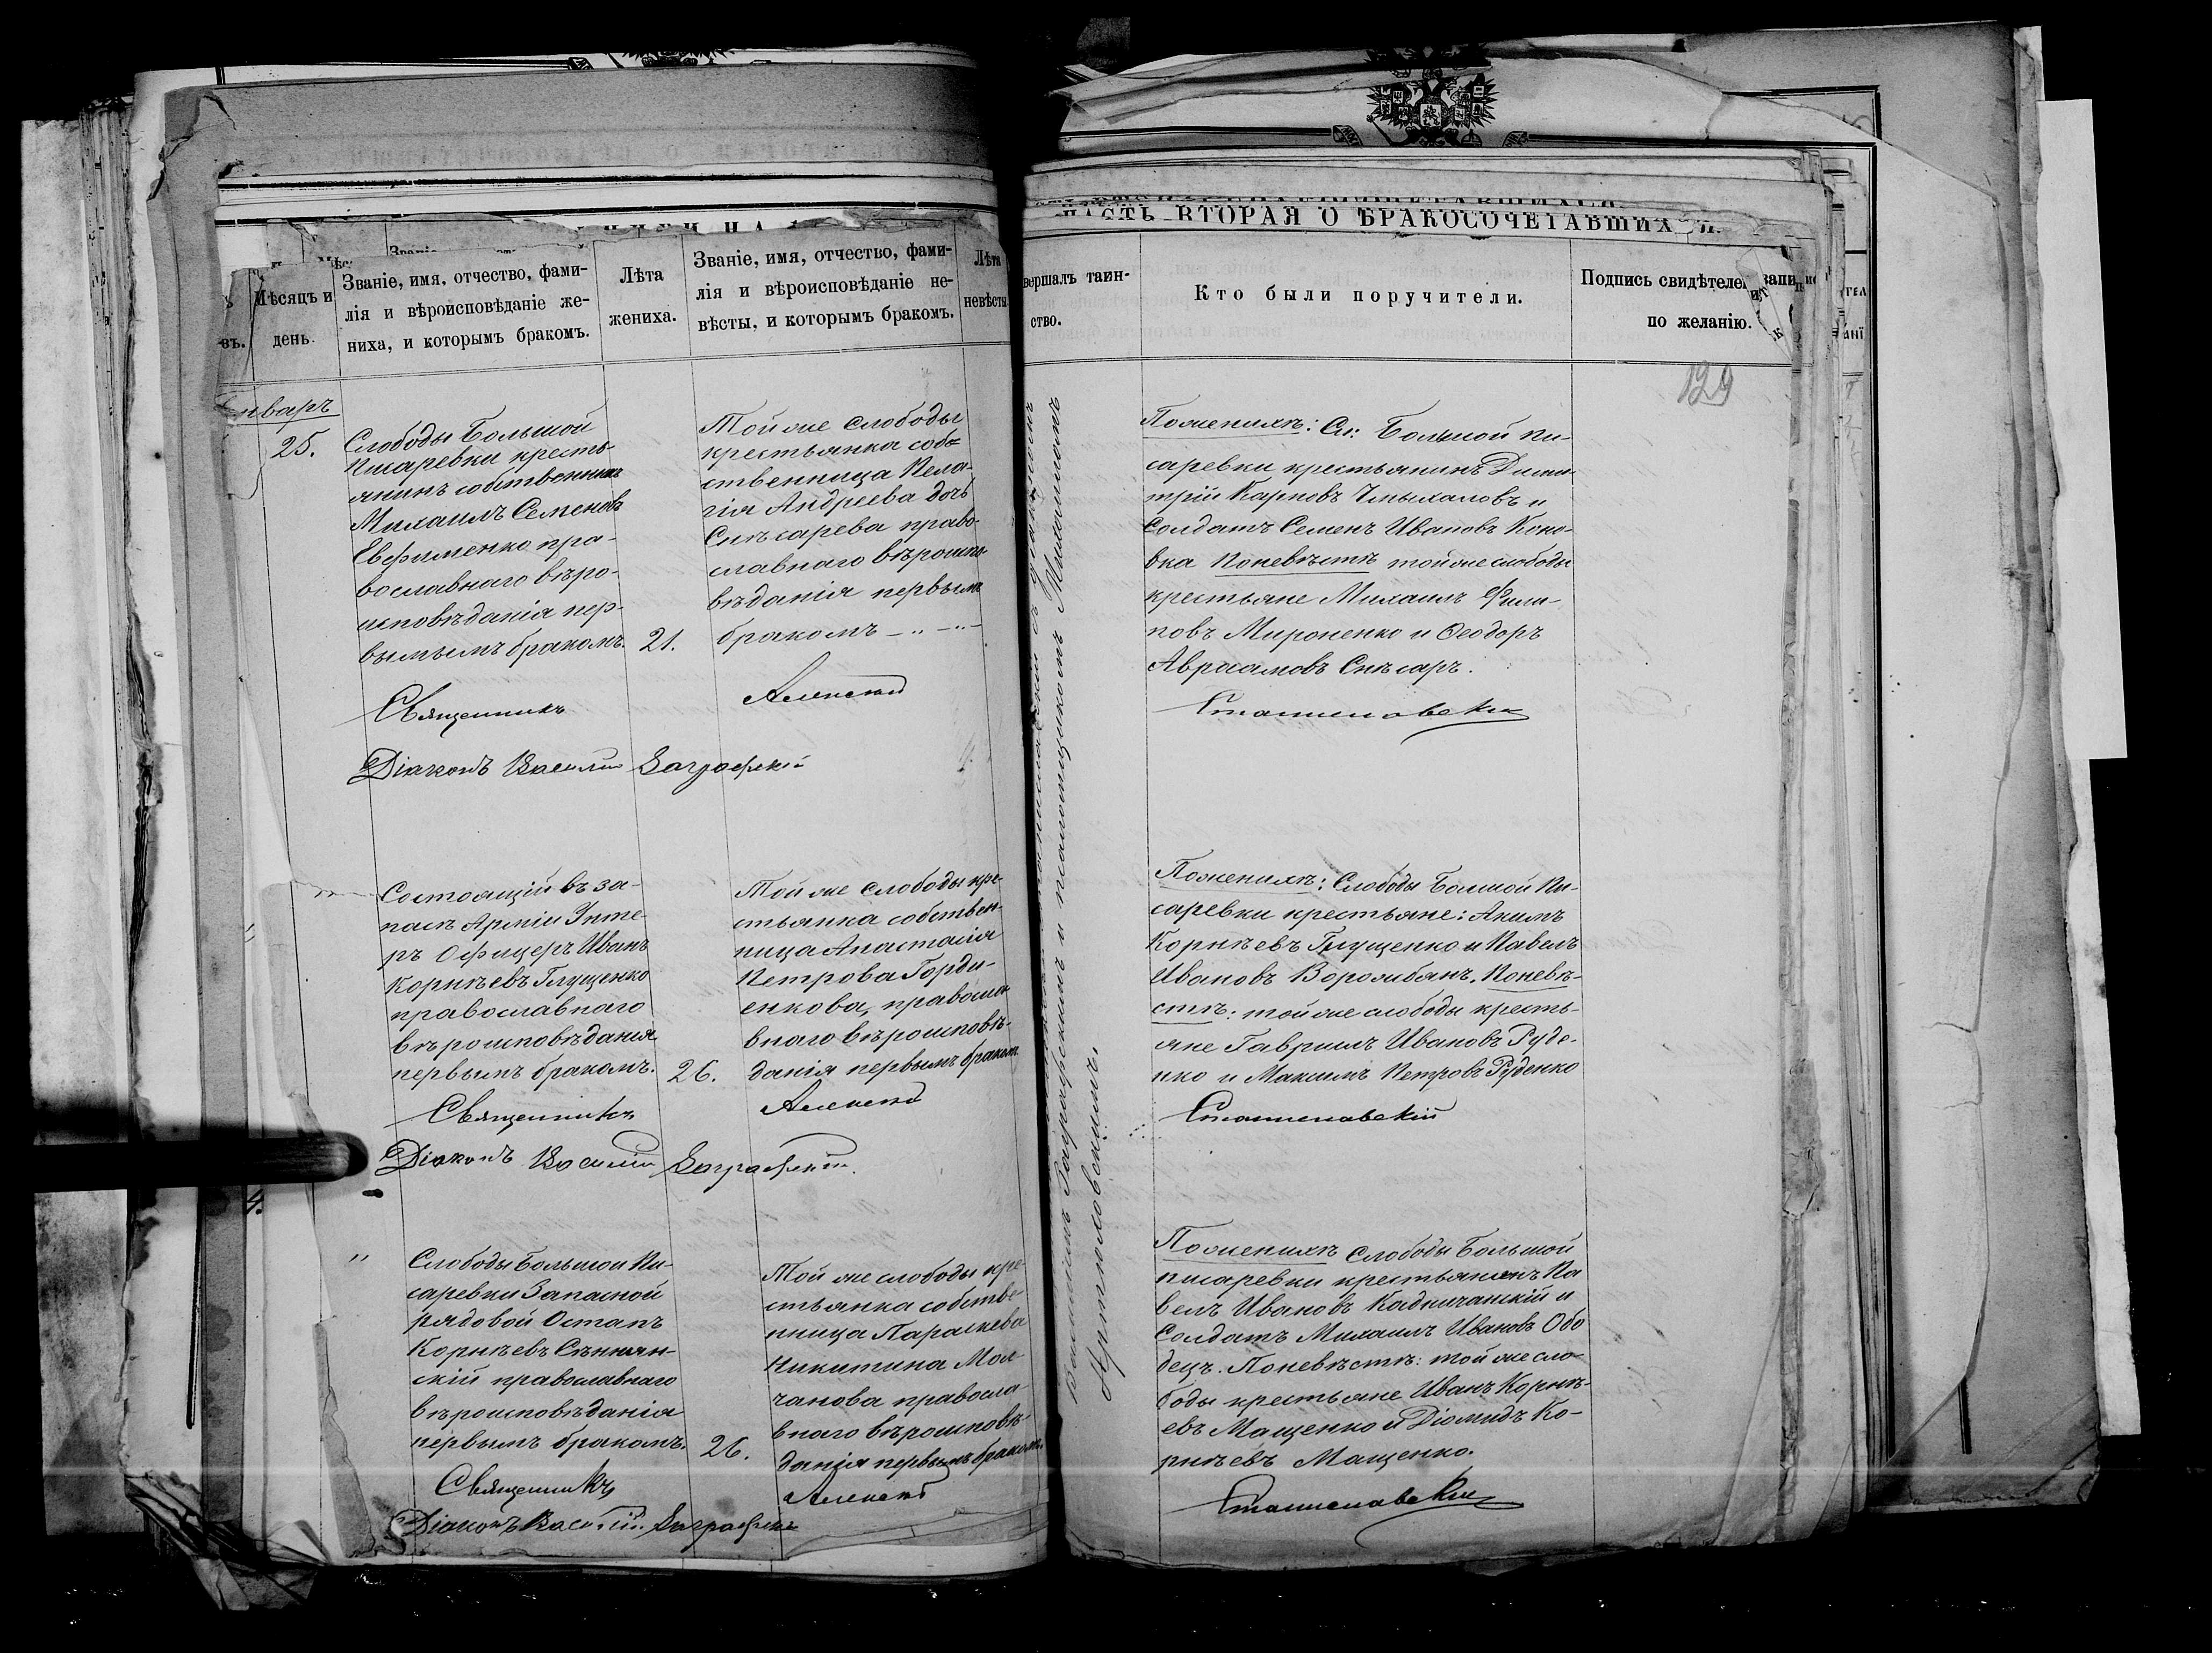 ЧАСТЬ ВТОРАЯ О БРАКОСОЧЕТАВШИХ
Мѣсяцъ и
день.
Званіе, имя, отчество, фами-
лія и вѣроисповѣданіе же-
ниха, и которымъ бракомъ.
Лѣта
жениха.
Званіе, имя, отчество, фами-
лія и вѣроисповѣданіе не-
вѣсты, и которымъ бракомъ.
Лѣта
невѣсты
вершалъ таин-
ство.
Кто были поручители.
Подпись свидѣтелей
по желанію.
129
нваръ
25.
Слободы Большой
Писаревки кресть-
янинъ собственникъ
Михаилъ Семеновъ
Евфименко пра-
вославнаго вѣро-
исповѣданія пер-
вымъ бракомъ.
21.
Той же слободы
крестьянка соб-
ственница Пела-
гія Андреева дочь
Слѣсарева право-
славнаго вѣроиспо-
вѣданія первымъ
бракомъ
Поженихѣ: Сл: Большой Пи-
саревки крестьянинъ Дими-
трій Карповъ и
Солдатъ Семенъ Ивановъ Коно-
вка Поневѣстѣ той же слободы
крестьяне Михаилъ Фили-
повъ Мироненко и Ѳеодоръ
Авраамовъ Слѣсарь.
Священникъ Алексей Станиславскій
Діаконъ Василій Заграфскій
Состоящій въ за-
пасѣ Арміи Унте-
ръ Офицеръ Иванъ
Корнѣевъ Глущенко
православнаго
вѣроисповѣданія
первымъ бракомъ.
26.
Той же слободы кре-
стьянка собствен-
ница Анастасія
Петрова Горди-
енкова, правосла-
внаго вѣроисповѣ-
данія первымъ бракомъ
Поженихѣ: Слободы Болшой Пи-
саревки крестьяне: Акимъ
Корнѣевъ Глущенко и Павелъ
Ивановъ Ворожбянъ. Поневѣ-
стѣ: той же слободы кресть-
яне Гавриилъ Ивановъ Руде-
нко и Максимъ Петровъ Руденко
Священникъ Алексей Станиславскій
Діаконъ Василій Заграфскій.
4.
"
Слободы Большой Пи-
саревки Запасной
рядовой Остапъ
Корнѣевъ Сѣннян-
скій православнаго
вѣроисповѣданія
первымъ бракомъ.
26.
Той же слободы кре
стьянка собстве-
нница Параскева
Никитина Мол-
чанова правосла-
внаго вѣроисповѣ-
данія первымъ бракомъ.
Поженихѣ Слободы Большой
писаревки крестьянинъ Па
велъ Ивановъ Кадничанскій и
Солдатъ Михаилъ Ивановъ Обо
децъ. Поневѣстѣ: той же сло-
боды крестьяне Иванъ Корнѣ-
евъ Мащенко и Діомидъ Ко-
рнѣевъ Мащенко.
Священникъ Алексей Станиславскій
Діаконъ Василій Заграфскій